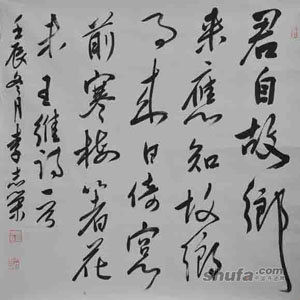 君自故鄉
来應知故鄉
事来日倚窓
前寒梅著花
未王維詩一首
壬辰冬月李志業
shufa.com